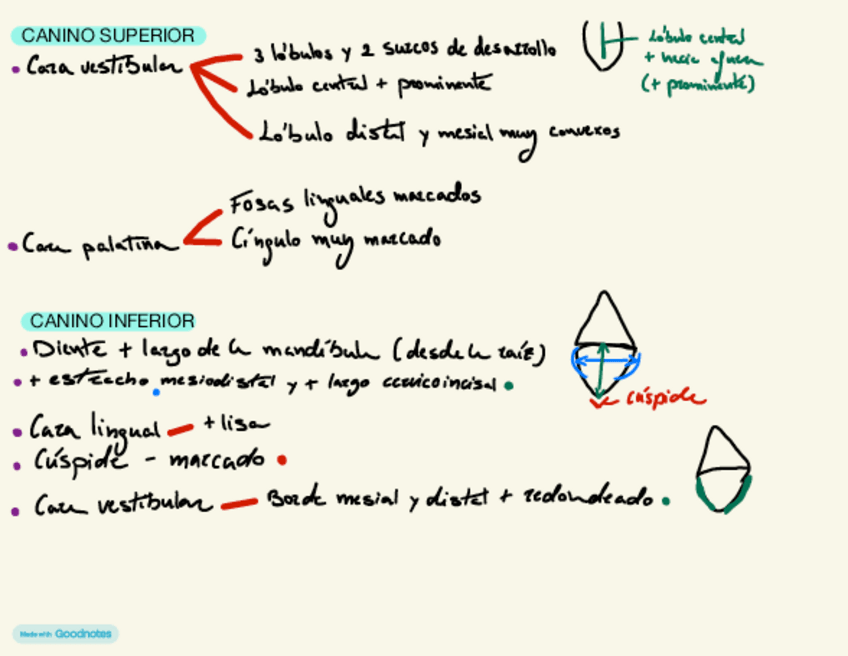 CANINO SUPERIOR
• Cara vestibular
3 lóbulos y 2 surcos de desarrollo
Lóbulo central + prominente
Lóbulo distal y mesial muy convexos
Lóbulo central
+ hacia afuera
(+ prominente)
• Cara palatina
Fosas linguales marcados
Cíngulo muy marcado
CANINO INFERIOR
• Diente + largo de la mandíbula (desde la raíz)
• + estrecho mesiodistal y + largo cervicoincisal
cúspide
• Cara lingual — + lisa
• Cúspide - marcado
• Cara vestibular — Borde mesial y distal + redondeado
Made with Goodnotes